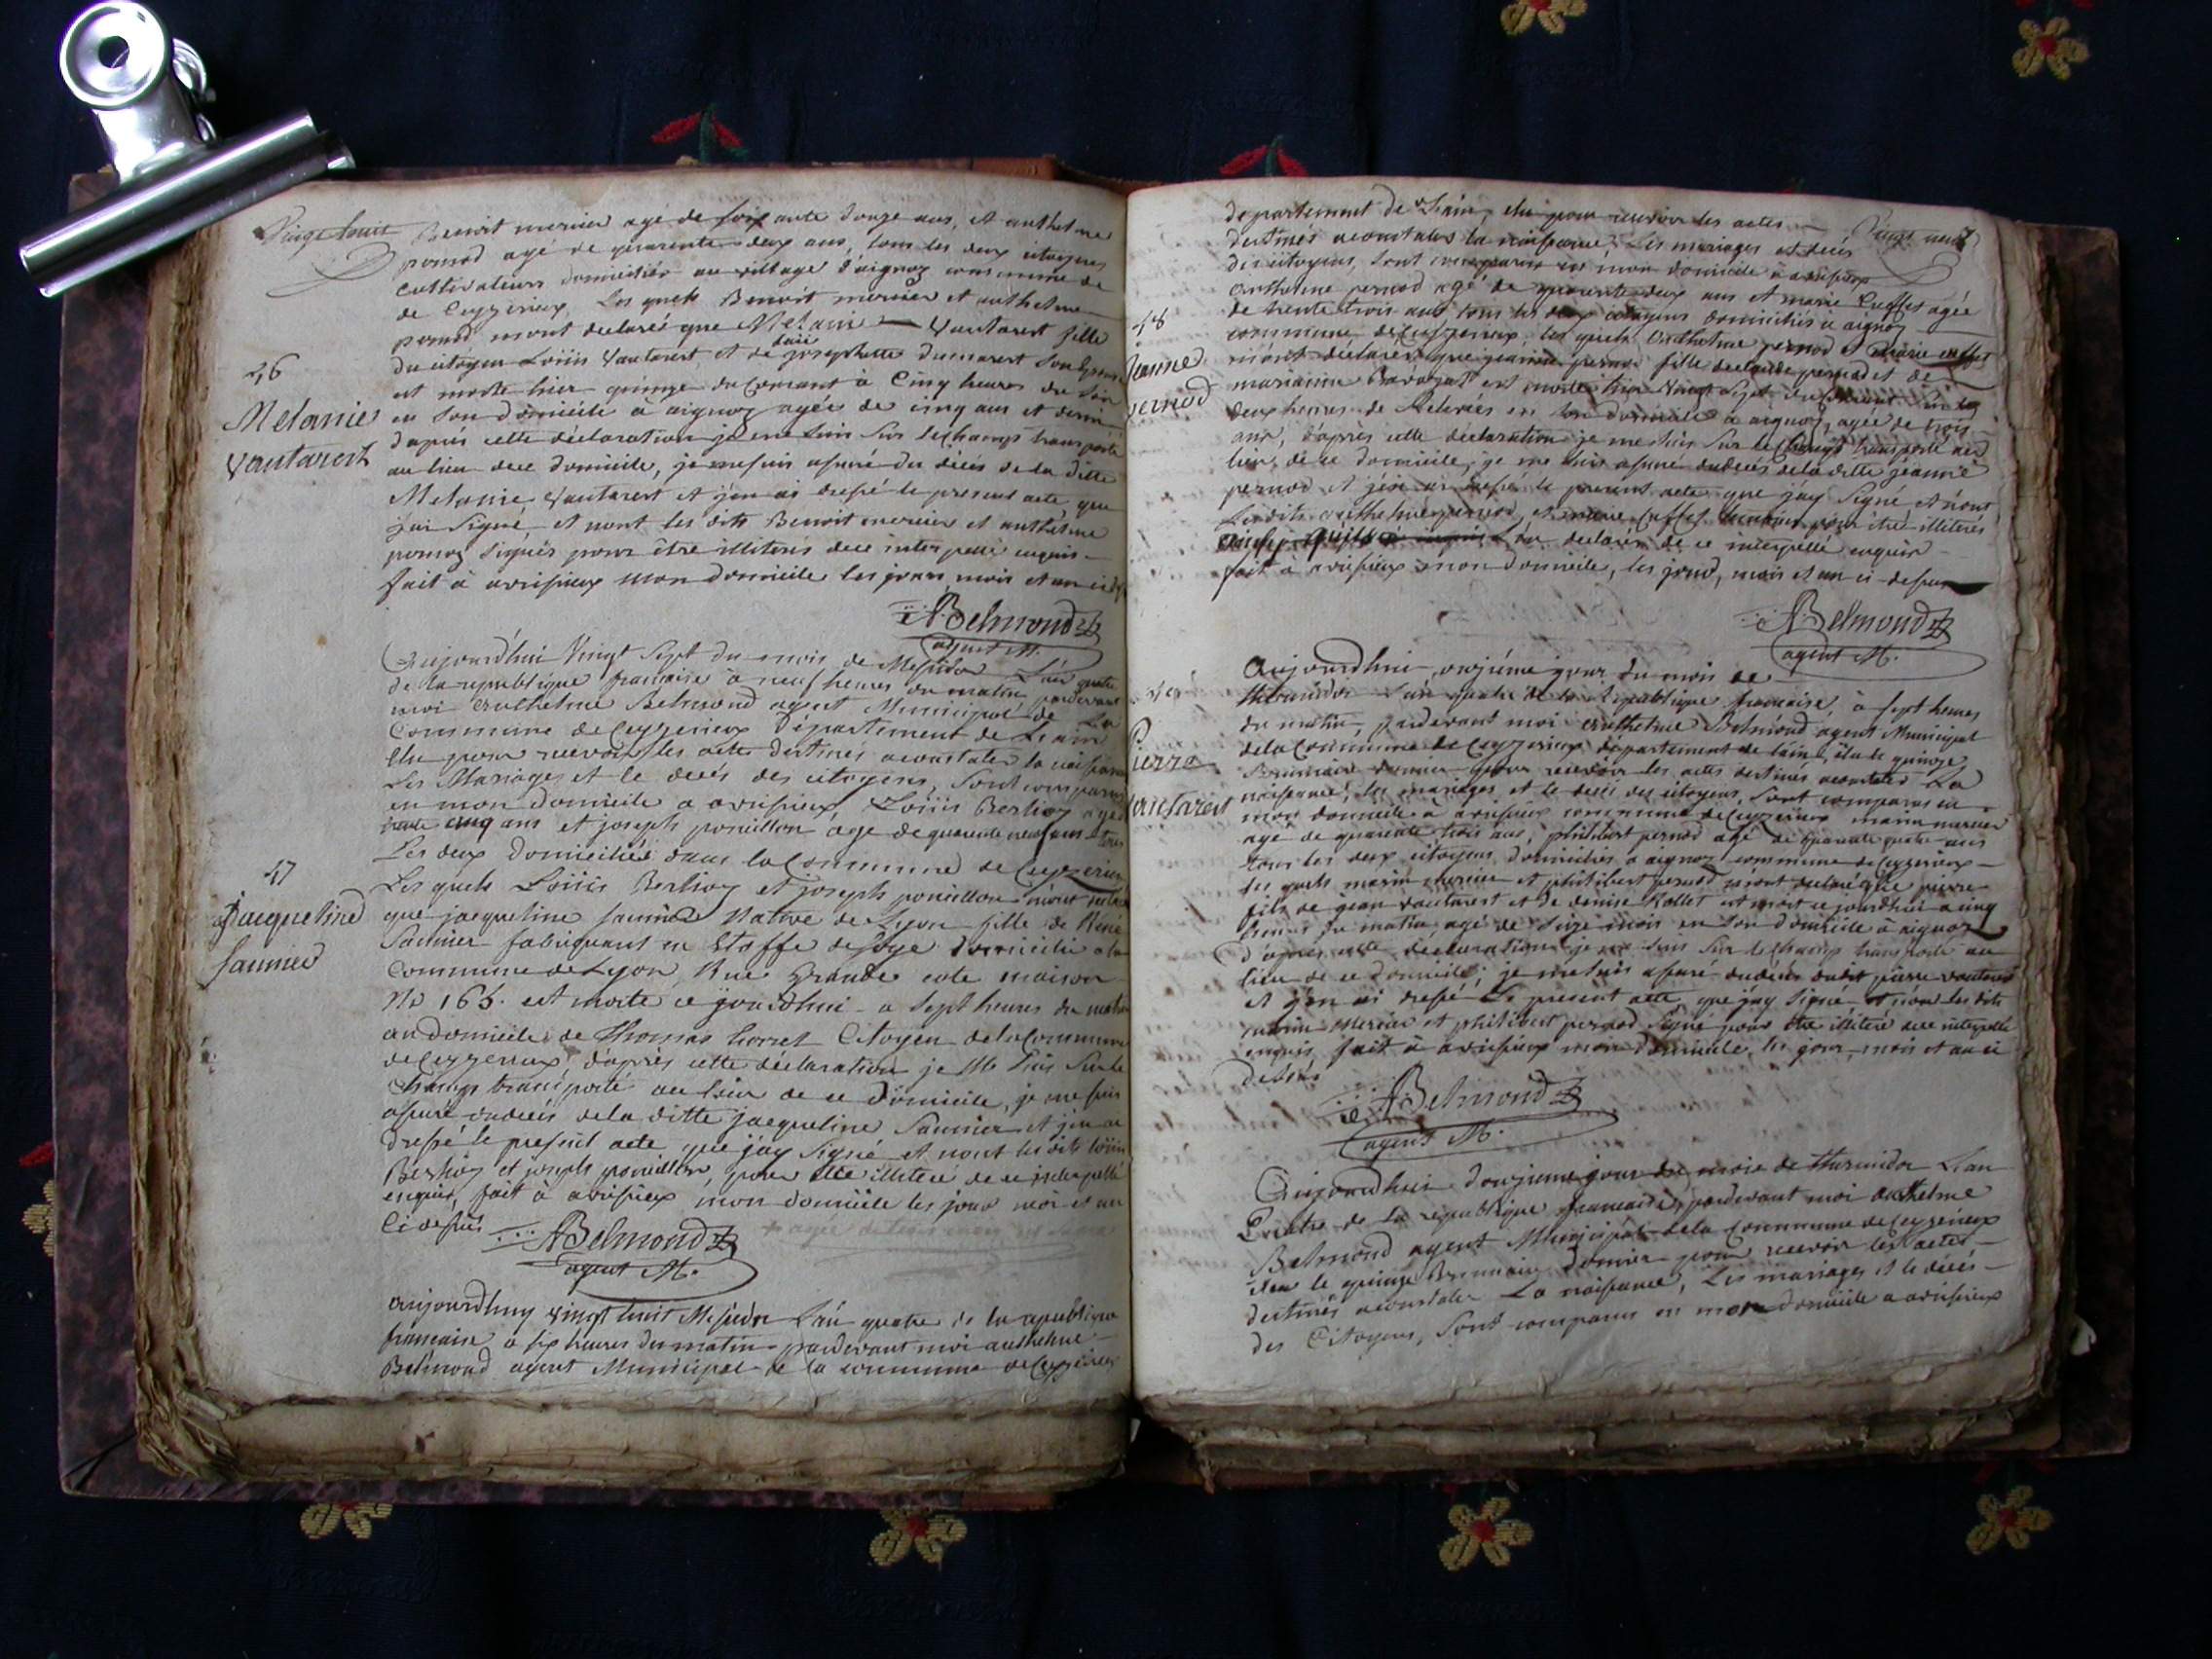 Vingt huit
Benoit mercier agé de soixante douze ans, et anthelme
pernod agé de quarente deux ans, tous les deux citoyens
cultivateurs domiciliés au village d'aignoz commune de
de Ceyzerieux, Les quels Benoit mercier et anthelme
pernod mont declaréé que Melanie Vautaret fille
du citoyen Louis Vautaret, et de josephette dumarest son Epouse
est morte hier quinze du Courant à Cinq heures du soir
en son domicile à aignoz agée de cinq ans et demi
46
Melanie
Vautaret
d'apres cette déclaration je me suis sur le champs transporté
au lieu de ce domicile, je me suis assuré du décès de la ditte
Melanie Vautaret et j'en ai dressé le present acte, que
j'ai signé, et nont les dits Benoit mercier et anthelme
pernoz signés pour être illiterés de ce interpellé enquis
fait à avrissieux mon domicile les jours mois et an
ABelmond
agent M.
Aujourd'hui Vingt Sept du mois de Messidor L'an quatre
de la republique française à neuf heures du matin pardevant
moi Anthelme Belmond agent Municipal de La
Commune de Ceyzerieux Département de Lain
Elu pour recevoir les actes destinés a constater la naissance
Les Mariages et le decés des citoyens, sont comparus
en mon domicile a avrissieux Louis Berlioz agé
trente cinq ans et joseph ponillon âge de quarente neuf ans tous
Les deux domiciliés dans la Commune de Ceyzerieux
Les quels Louis Berlioz et joseph ponillon mont
47
Jacqueline
Saunier
que jacqueline saunier Native de Lyon fille de René
Saunier fabriquant en Etoffe de soye domicilié a la
Commune de Lyon, Rue Grande cote maison
No 165. est morte ce jourdhui a sept heures du matin
au domicile de Thomas Corret Citoyen de la Commune
de Ceyzerieux, d'après cette déclaration je Me suis sur le
Champ transporté au lieu de ce domicile, je me suis
assuré du decès de la ditte jacqueline Saunier et j'en ai
dressé le present acte que j'ay signé et nont les dits Louis
Berlioz et joseph ponillon, pour etre illiteré de ce interpellé
enquis, fait à avrissieux mon domicile les jour moi et an
Ci dessus
ABelmond
agent M.
aujourdhuy vingt huit Messidor L'an quatre de la republique
française à six heures du matin pardevant moi anthelme
Belmond agent Municipal de la commune de Ceyzerieux
departement de Lain, elu pour recevoir les actes
Vingt neuf
destinés a constater la naissance, Les mariages et decés
des citoyens, sont comparus en mon domicile a avrissieux
anthelme pernod agé de quarente deux ans et marie Cuffet agée
de trente trois ans tous les deux citoyens domiciliés à aignoz
48
Jeanne
pernod
commune de Ceyzerieux, les quels Anthelme pernod et Marie cuffet
m'ont declaré que jeanne pernod fille de claude pernod et de
marianne est morte hier Vingt Sept du Courant
deux heures de Relevées en son domicile à aignoz, agée de trois
ans, d'après cette déclaration je me suis sur le champs transporté au
lieu de ce domicile, je me suis assuré du decès de la ditte jeanne
pernod et j'en ai dressé le present acte que j'ay signé et n'ont
Lesdits anthelme pernod, et marie Cuffet pour être illiterés
declaré de ce interpellé enquis
fait à avrissieux mon domicile, les jour, mois et an ci dessus
ABelmond
agent M.
Aujourdhui onzième jour du mois de
49
Pierre
Vautaret
thermidor L'an quatre de la Republique française, à sept heures
du matin, pardevant moi Anthelme Belmond agent Municipal
de la Commune de Ceyzerieux département de lain, élu le quinze
Brumaire dernier pour recevoir les actes destinés a constater La
naissance, les mariages et le decés des citoyens, sont comparus en
mon domicile à avrissieux commune de Ceyzerieux marin mercier
agé de quarante trois ans, philibert pernod agé de quarante quatre ans
tous les deux citoyens domiciliés à aignoz commune de Ceyzerieux
les quels marin mercier et philibert pernod m'ont declaré que pierre
fils de jean vautaret et de denise Rollet est mort ce jourdhui a cinq
heures du matin, agé de seize mois en son domicile à aignoz
d'apres cette declaration je me suis sur le champ transporté au
lieu de ce domicile; je me suis assuré du decès dudit pierre vautaret
et j'en ai dressé Le present acte que j'ay signé et n'ont les dits
marin Mercier et philibert pernod signé pour être illiteré de ce interpellé
enquis, fait à avrissieux mon domicile, les jour, mois et an ci
dessus
ABelmond
agent M.
Aujourdhui douzieme jour du mois de thermidor L'an
Quatre de La republique francaise, pardevant moi Anthelme
Belmond agent Municipal de la Commune de Ceyzerieux
élu le quinze Brumaire dernier pour recevoir les actes
destinés a constater La naissance, Les mariages et le décés
des Citoyens, sont comparus en mon domicile a avrissieux